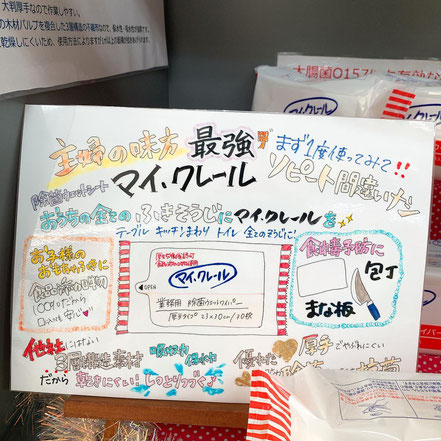 大判厚手なので作業しやすい。
の木材パルプを複合した3層構造の不織布なので、保水性・吸水性が抜群です。
乾燥しにくいため、使用方法によりますが1枚以上の
大腸菌O157
有効な
主婦の味方 最強
まず1度使ってみて!!
除菌ウェットシート
マイ、クレール
リピート間違いナシ
おうちの全ての ふきそうじにマイ、クレールを
テーブル キッチンまわり トイレ 全てのそうじに!
お子様の
おもちゃふきに
食品添加物
100%だから
安心
OPEN
マイ、クレール
業務用 除菌ウェットワイパー
厚手タイプ 23×30cm/30枚
食中毒予防に
包丁
まな板
他社にはない
3層構造素材
だから 乾きにくい! しっとりつづく♪
吸収力 保水力
優れた
厚手でやぶれにくい